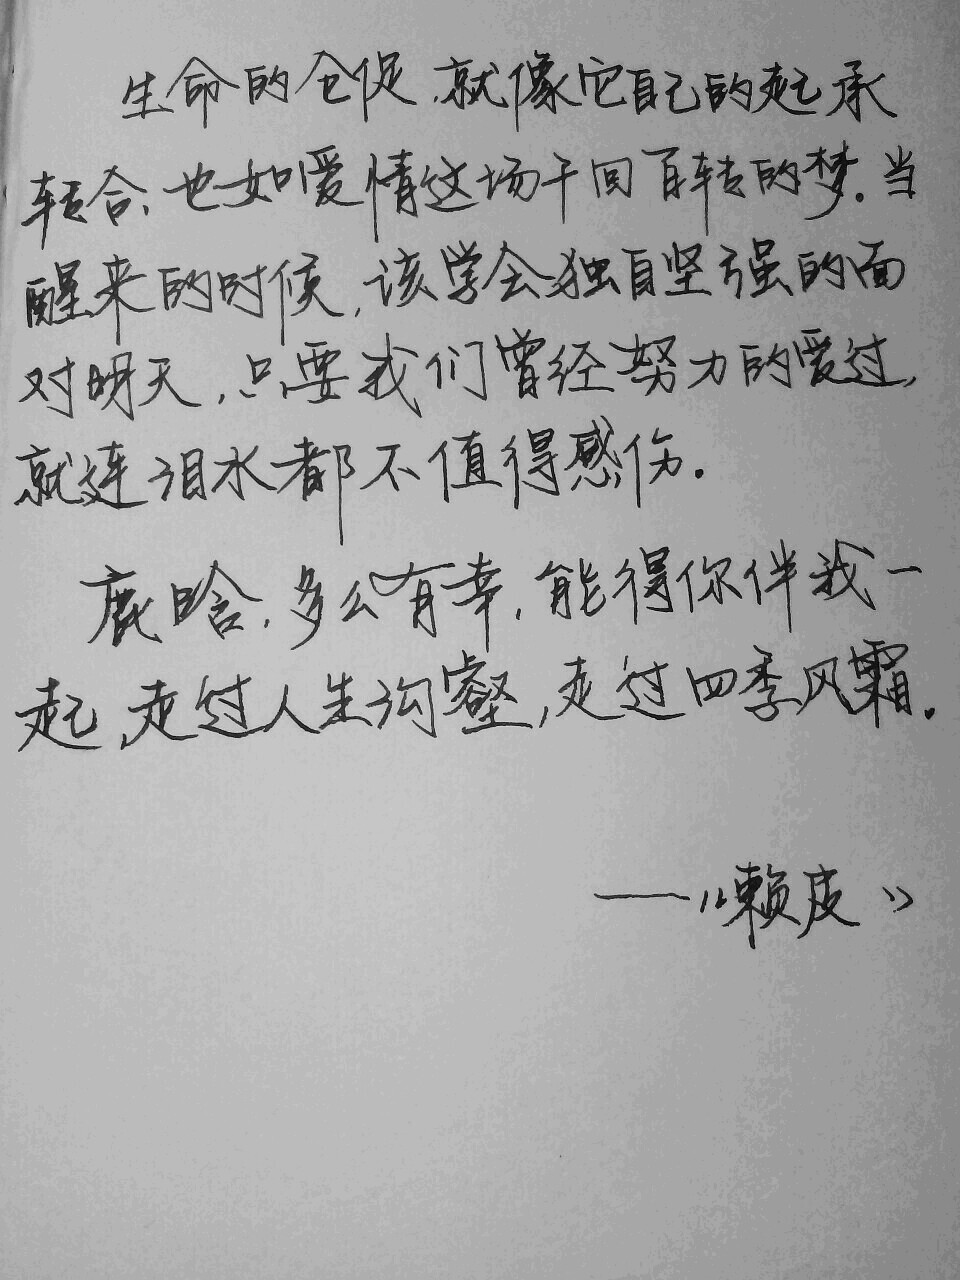 生命的仓促，就像它自己的起承
转合、也如爱情这场千回百转的梦．当
醒来的时候，该学会独自坚强的面
对明天，只要我们曾经努力的爱过，
就连泪水都不值得感伤．
鹿晗，多么有幸，能得你伴我一
起，走过人生沟壑，走过四季风霜．
——《赖皮》